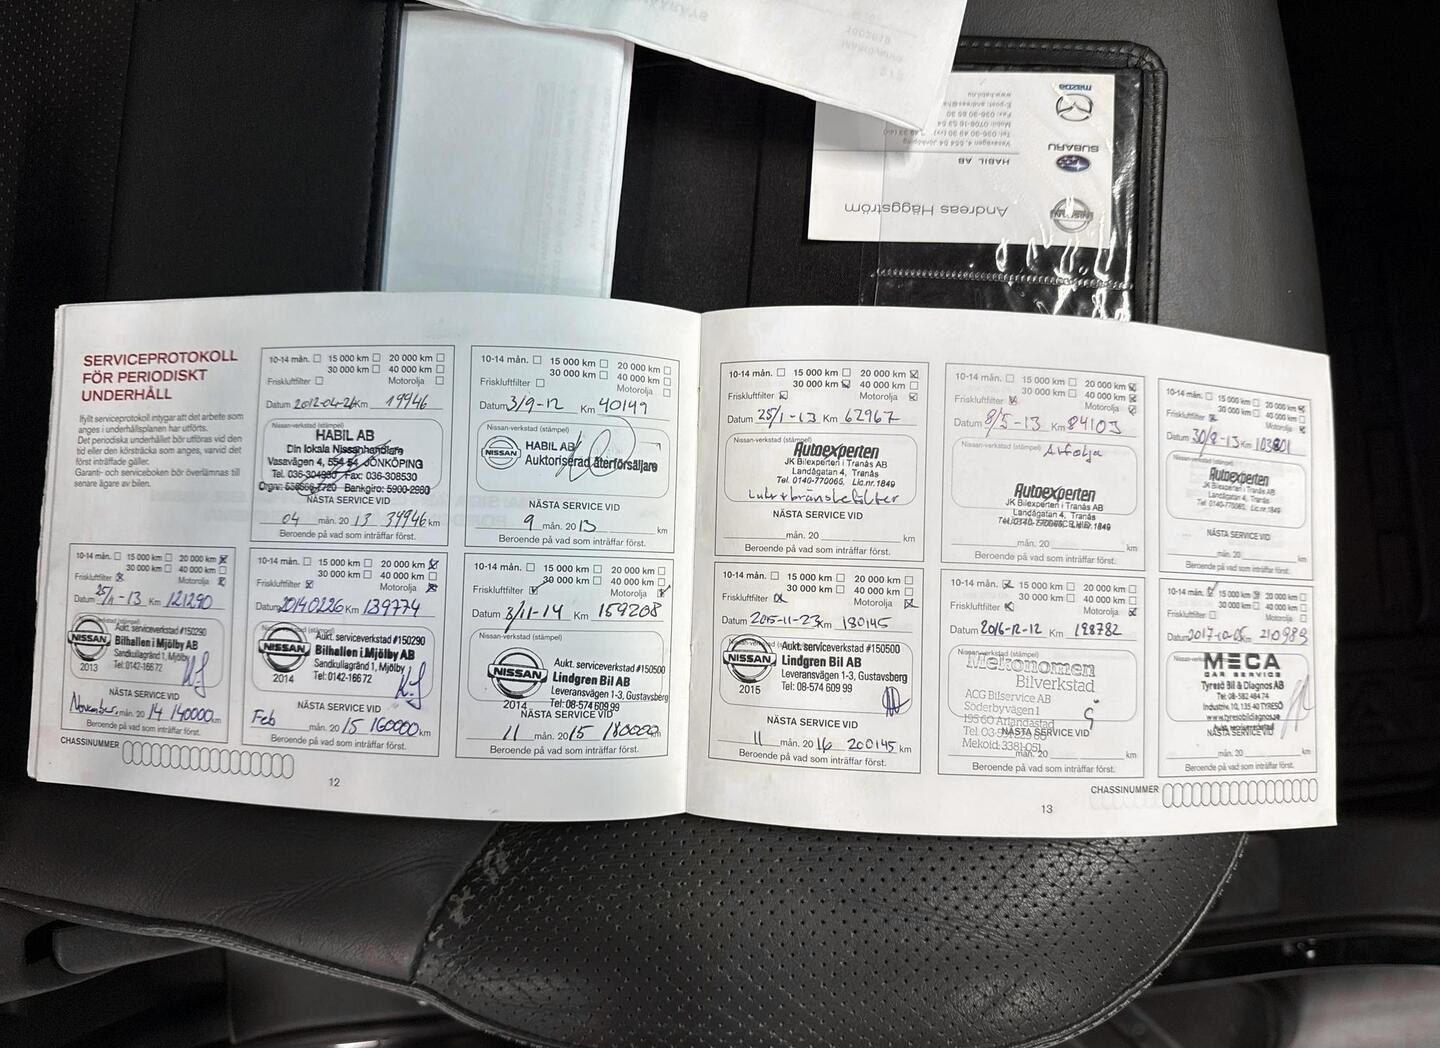 HABIL AB
Vasavägen 4, 554 54 Jönköping
www.habil.nu
Andreas Häggström
NISSAN
SUBARU
mazda
SERVICEPROTOKOLL
FÖR PERIODISKT
UNDERHÅLL
Ifyllt serviceprotokoll intygar att det arbete som
anges i underhållsplanen har utförts.
Det periodiska underhållet bör utföras vid den
tid eller den körsträcka som anges, varvid det
först inträffade gäller.
Garanti- och serviceboken bör överlämnas till
senare ägare av bilen.
10-14 mån. 15 000 km 20 000 km
30 000 km 40 000 km
Friskluftfilter Motorolja
Datum 2012-04-26 Km 19946
Nissan-verkstad (stämpel)
HABIL AB
Din lokala Nissanhandlare
Vasavägen 4, 554 54 JÖNKÖPING
Tel. 036-304930 Fax: 036-308530
Bankgiro: 5900-2980
NÄSTA SERVICE VID
04 mån. 20 13 39946 km
Beroende på vad som inträffar först.
10-14 mån. 15 000 km 20 000 km
30 000 km 40 000 km
Friskluftfilter Motorolja
Datum 3/9-12 Km 40149
Nissan-verkstad (stämpel)
NISSAN
HABIL AB
Auktoriserad återförsäljare
NÄSTA SERVICE VID
9 mån. 20 13 km
Beroende på vad som inträffar först.
10-14 mån. 15 000 km 20 000 km
30 000 km 40 000 km
Friskluftfilter Motorolja
Datum 25/11-13 Km 121290
Nissan-verkstad (stämpel)
NISSAN
2013
Aukt. serviceverkstad #150290
Bilhallen i Mjölby AB
Sandkullagränd 1, Mjölby
Tel: 0142-166 72
NÄSTA SERVICE VID
November. mån. 20 14 140000 km
Beroende på vad som inträffar först.
10-14 mån. 15 000 km 20 000 km
30 000 km 40 000 km
Friskluftfilter Motorolja
Datum 20140226 Km 139774
Nissan-verkstad (stämpel)
NISSAN
2014
Aukt. serviceverkstad #150290
Bilhallen i Mjölby AB
Sandkullagränd 1, Mjölby
Tel: 0142-166 72
NÄSTA SERVICE VID
Feb mån. 20 15 160000 km
Beroende på vad som inträffar först.
10-14 mån. 15 000 km 20 000 km
30 000 km 40 000 km
Friskluftfilter Motorolja
Datum 3/11-14 Km 159208
Nissan-verkstad (stämpel)
NISSAN
2014
Aukt. serviceverkstad #150500
Lindgren Bil AB
Leveransvägen 1-3, Gustavsberg
Tel: 08-574 609 99
NÄSTA SERVICE VID
11 mån. 20 15 180000 km
Beroende på vad som inträffar först.
CHASSINUMMER
12
10-14 mån. 15 000 km 20 000 km
30 000 km 40 000 km
Friskluftfilter Motorolja
Datum 25/1-13 Km 62967
Nissan-verkstad (stämpel)
Autoexperten
JK Bilexperten i Tranås AB
Landågatan 4, Tranås
Tel. 0140-770065, Lic.nr.1849
Luft+bränslefilter
NÄSTA SERVICE VID
mån. 20 km
Beroende på vad som inträffar först.
10-14 mån. 15 000 km 20 000 km
30 000 km 40 000 km
Friskluftfilter Motorolja
Datum 8/5-13 Km 84103
Nissan-verkstad (stämpel)
Autoexperten
JK Bilexperten i Tranås AB
Landågatan 4, Tranås
mån. 20 km
Beroende på vad som inträffar först.
10-14 mån. 15 000 km 20 000 km
30 000 km 40 000 km
Friskluftfilter Motorolja
Datum 30/8-13 Km 103801
Nissan-verkstad (stämpel)
Autoexperten
JK Bilexperten i Tranås AB
Landågatan 4, Tranås
Tel. 0140-770065, Lic.nr.1849
NÄSTA SERVICE VID
mån. 20 km
Beroende på vad som inträffar först.
10-14 mån. 15 000 km 20 000 km
30 000 km 40 000 km
Friskluftfilter Motorolja
Datum 2015-11-23 Km 180145
NISSAN
2015
Aukt. serviceverkstad #150500
Lindgren Bil AB
Leveransvägen 1-3, Gustavsberg
Tel: 08-574 609 99
NÄSTA SERVICE VID
11 mån. 20 16 200145 km
Beroende på vad som inträffar först.
10-14 mån. 15 000 km 20 000 km
30 000 km 40 000 km
Friskluftfilter Motorolja
Datum 2016-12-12 Km 198782
Nissan-verkstad (stämpel)
Mekonomen
Bilverkstad
ACG Bilservice AB
Söderbyvägen 1
195 60 Arlandastad
Mekoid: 3381-051
NÄSTA SERVICE VID
mån. 20 km
Beroende på vad som inträffar först.
10-14 mån. 15 000 km 20 000 km
30 000 km 40 000 km
Friskluftfilter Motorolja
Datum 2017-10-05 Km 210983
MECA
CAR SERVICE
Tyresö Bil & Diagnos AB
Tel: 08-582 484 74
Industriv. 10, 135 40 TYRESÖ
www.tyresobildiagnos.se
NÄSTA SERVICE VID
mån. 20 km
Beroende på vad som inträffar först.
CHASSINUMMER
13